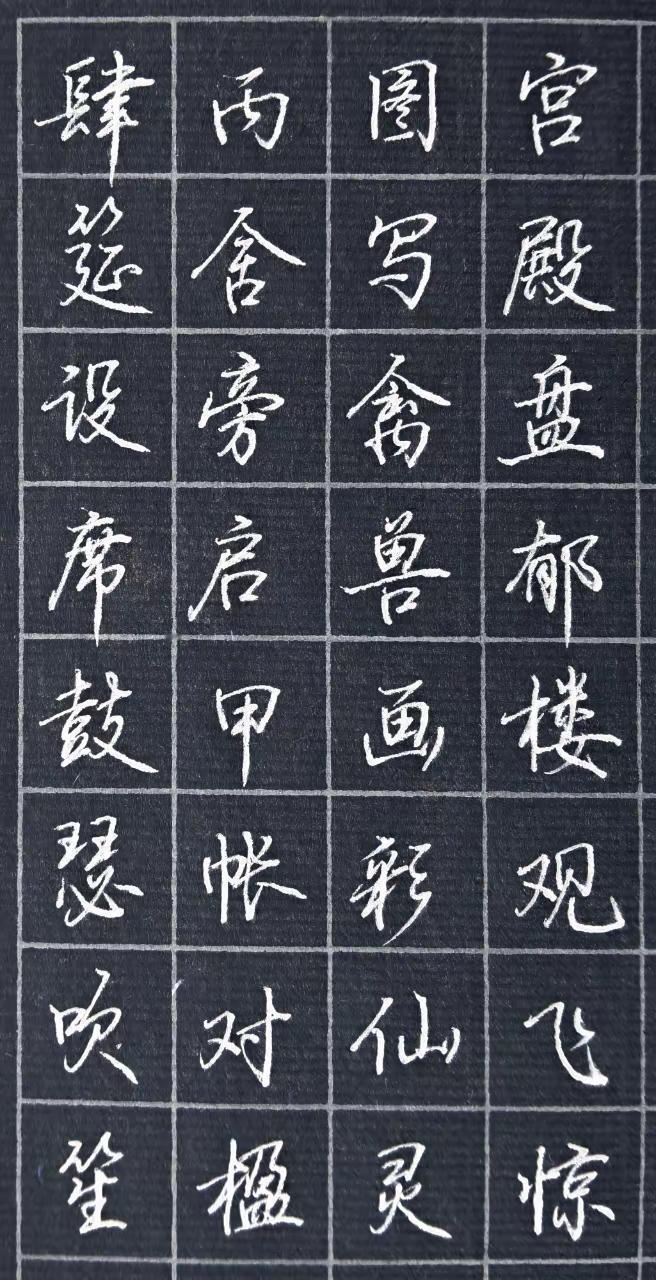 宫殿盘郁楼观飞惊
图写禽兽画彩仙灵
丙舍旁启甲帐对楹
肆筵设席鼓瑟吹笙